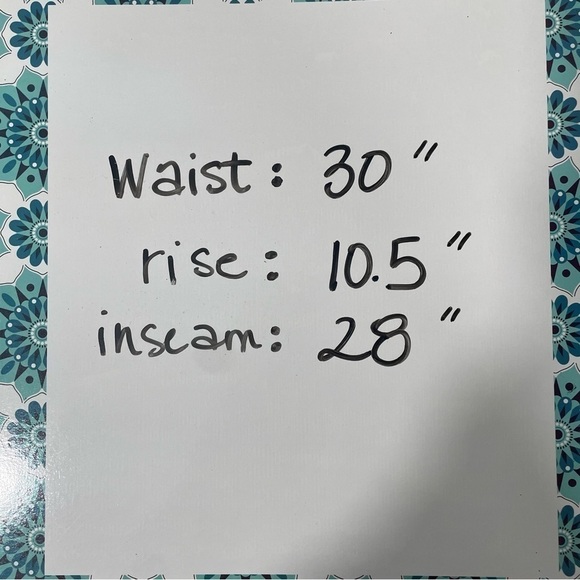 Waist: 30"
rise: 10.5"
inseam: 28"